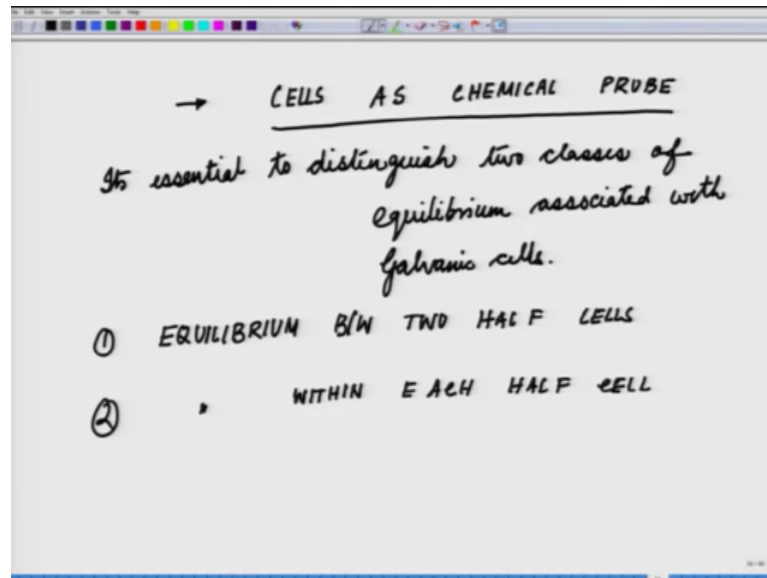 → CELLS AS CHEMICAL PROBE
Its essential to distinguish two classes of
equilibrium associated with
Galvanic cells.
① EQUILIBRIUM B/W TWO HALF CELLS
② " WITHIN EACH HALF CELL